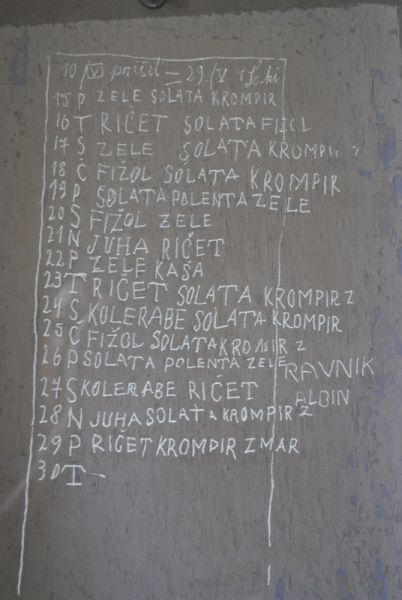 10/VI prišel – 29./V
15 P ZELE SOLATA KROMPIR
16 T RIČET SOLATA FIZOL
17 S ZELE SOLATA KROMPIR
18 Č FIŽOL SOLATA KROMPIR
19 P SOLATA POLENTA ZELE
20 S FIŽOL ZELE
21 N JUHA RIČET
22 P ZELE KAŠA
23 T RIČET SOLATA KROMPIR Z
24 S KOLERABE SOLATA KROMPIR
25 Č FIŽOL SOLATA KROMPIR Z
26 P SOLATA POLENTA ZELE
RAVNIK
27 S KOLERABE RIČET
ALBIN
28 N JUHA SOLATA KROMPIR Z
29 P RIČET KROMPIR Z MAR
30 T –